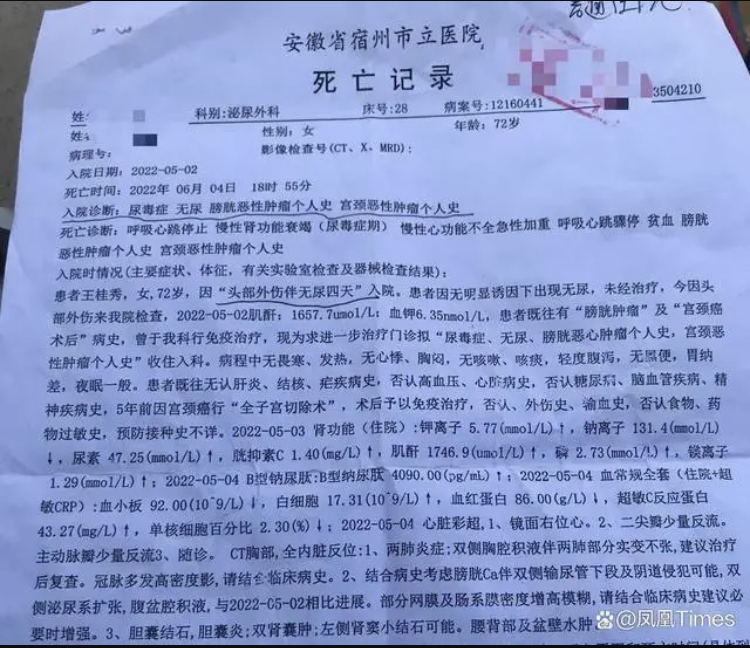 安徽省宿州市立医院
死亡记录
姓
科别:泌尿外科
床号:28
病案号:12160441
3504210
姓
性别:女
年龄:72岁
病理号:
影像检查号(CT、X、MRD):
入院日期:2022-05-02
死亡时间:2022年 06月 04日 18时 55分
入院诊断:尿毒症 无尿 膀胱恶性肿瘤个人史 宫颈恶性肿瘤个人史
死亡诊断:呼吸心跳停止 慢性肾功能衰竭(尿毒症期) 慢性心功能不全急性加重 呼吸心跳骤停 贫血 膀胱
恶性肿瘤个人史 宫颈恶性肿瘤个人史
入院时情况(主要症状、体征,有关实验室检查及器械检查结果):
患者王桂秀,女,72岁,因“头部外伤伴无尿四天”入院。患者因无明显诱因下出现无尿,未经治疗,今因头
部外伤来我院检查,2022-05-02肌酐:1657.7umol/L;血钾6.35nmol/L,患者既往有“膀胱肿瘤”及“宫颈癌
术后”病史,曾于我科行免疫治疗,现为求进一步治疗门诊拟“尿毒症、无尿、膀胱恶心肿瘤个人史,宫颈恶
性肿瘤个人史”收住入科。病程中无畏寒、发热,无心悸、胸闷,无咳嗽、咳痰,轻度腹泻,无黑便,胃纳
差,夜眠一般。患者既往无认肝炎、结核、疟疾病史,否认高血压、心脏病史,否认糖尿病、脑血管疾病、精
神疾病史,5年前因宫颈癌行“全子宫切除术”,术后予以免疫治疗,否认、外伤史、输血史,否认食物、药
物过敏史,预防接种史不详。2022-05-03 肾功能(住院):钾离子 5.77(mmol/L)↑,钠离子 131.4(mmol/L)
↓,尿素 47.25(mmol/L)↑,胱抑素C 1.40(mg/L)↑,肌酐 1746.9(umol/L)↑,磷 2.73(mmol/L)↑,镁离子
1.29(mmol/L)↑;2022-05-04 B型钠尿肽:B型钠尿肽 4090.00(pg/mL)↑;2022-05-04 血常规全套(住院+超
敏CRP):血小板 92.00(10^9/L)↓,白细胞 17.31(10^9/L)↑,血红蛋白 86.00(g/L)↓,超敏C反应蛋白
43.27(mg/L)↑,单核细胞百分比 2.30(%)↓;2022-05-04 心脏彩超,1、镜面右位心。2、二尖瓣少量反流。
主动脉瓣少量反流3、随诊。 CT胸部,全内脏反位:1、两肺炎症;双侧胸腔积液伴两肺部分实变不张,建议治疗
后复查。冠脉多发高密度影,请结合临床病史。2、结合病史考虑膀胱Ca伴双侧输尿管下段及阴道侵犯可能,双
侧泌尿系扩张,腹盆腔积液,与2022-05-02相比进展。部分网膜及肠系膜密度增高模糊,请结合临床病史建议必
要时增强。3、胆囊结石,胆囊炎;双肾囊肿;左侧肾窦小结石可能。腰背部及盆壁水肿
@凤凰Times